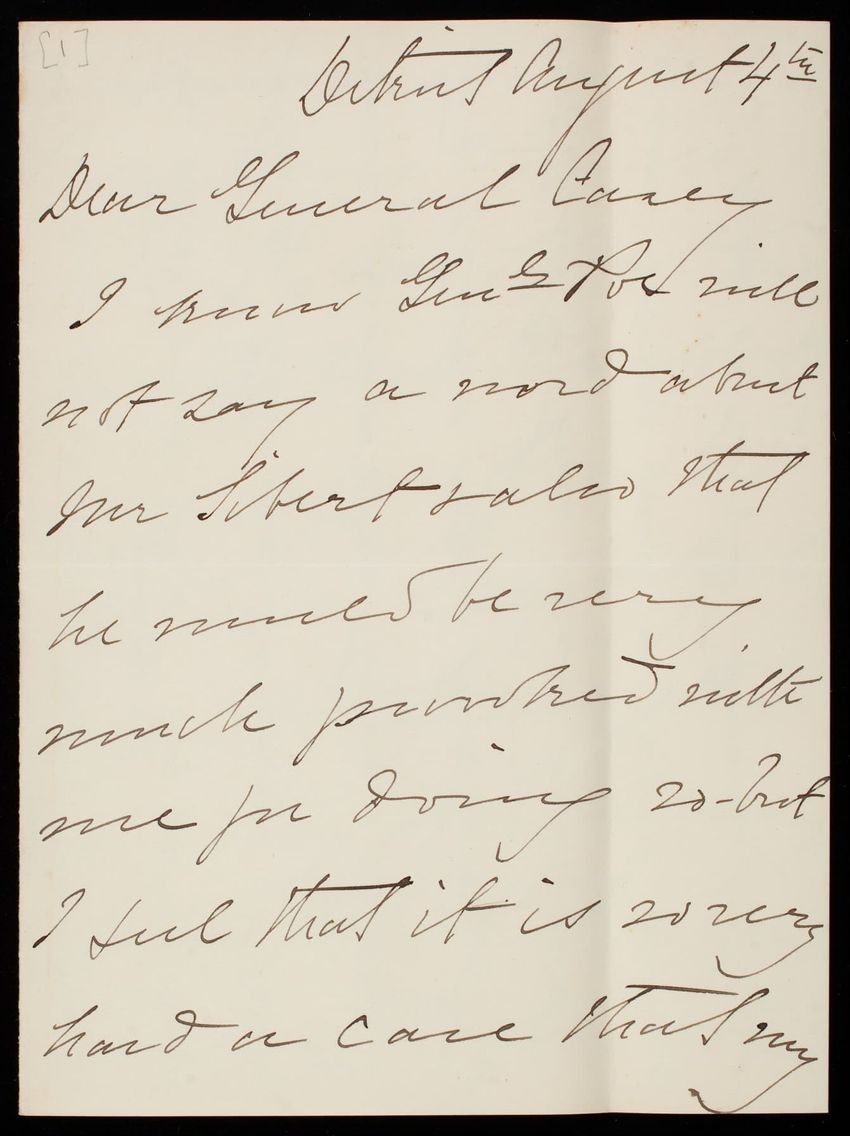 [1]
Detroit August 4th
Dear General Casey
I know Genl Poe will
not say a word about
Mr Sibert & also that
he would be very
much provoked with
me for doing so - but
I feel that it is so very
hard a case that my